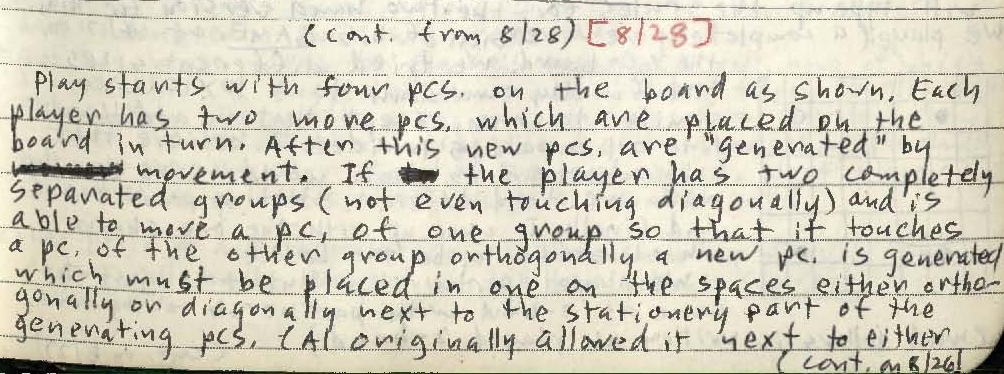 (cont. from 8/28) [8/28]
Play starts with four pcs. on the board as shown. Each
player has two more pcs. which are placed on the
board in turn. After this new pcs. are "generated" by
movement. If the player has two completely
separated groups (not even touching diagonally) and is
able to move a pc. of one group so that it touches
a pc. of the other group orthogonally a new pc. is generated
which must be placed in one on the spaces either ortho-
gonally or diagonally next to the stationery part of the
generating pcs. (Al originally allowed it next to either
(cont. on 8/26)